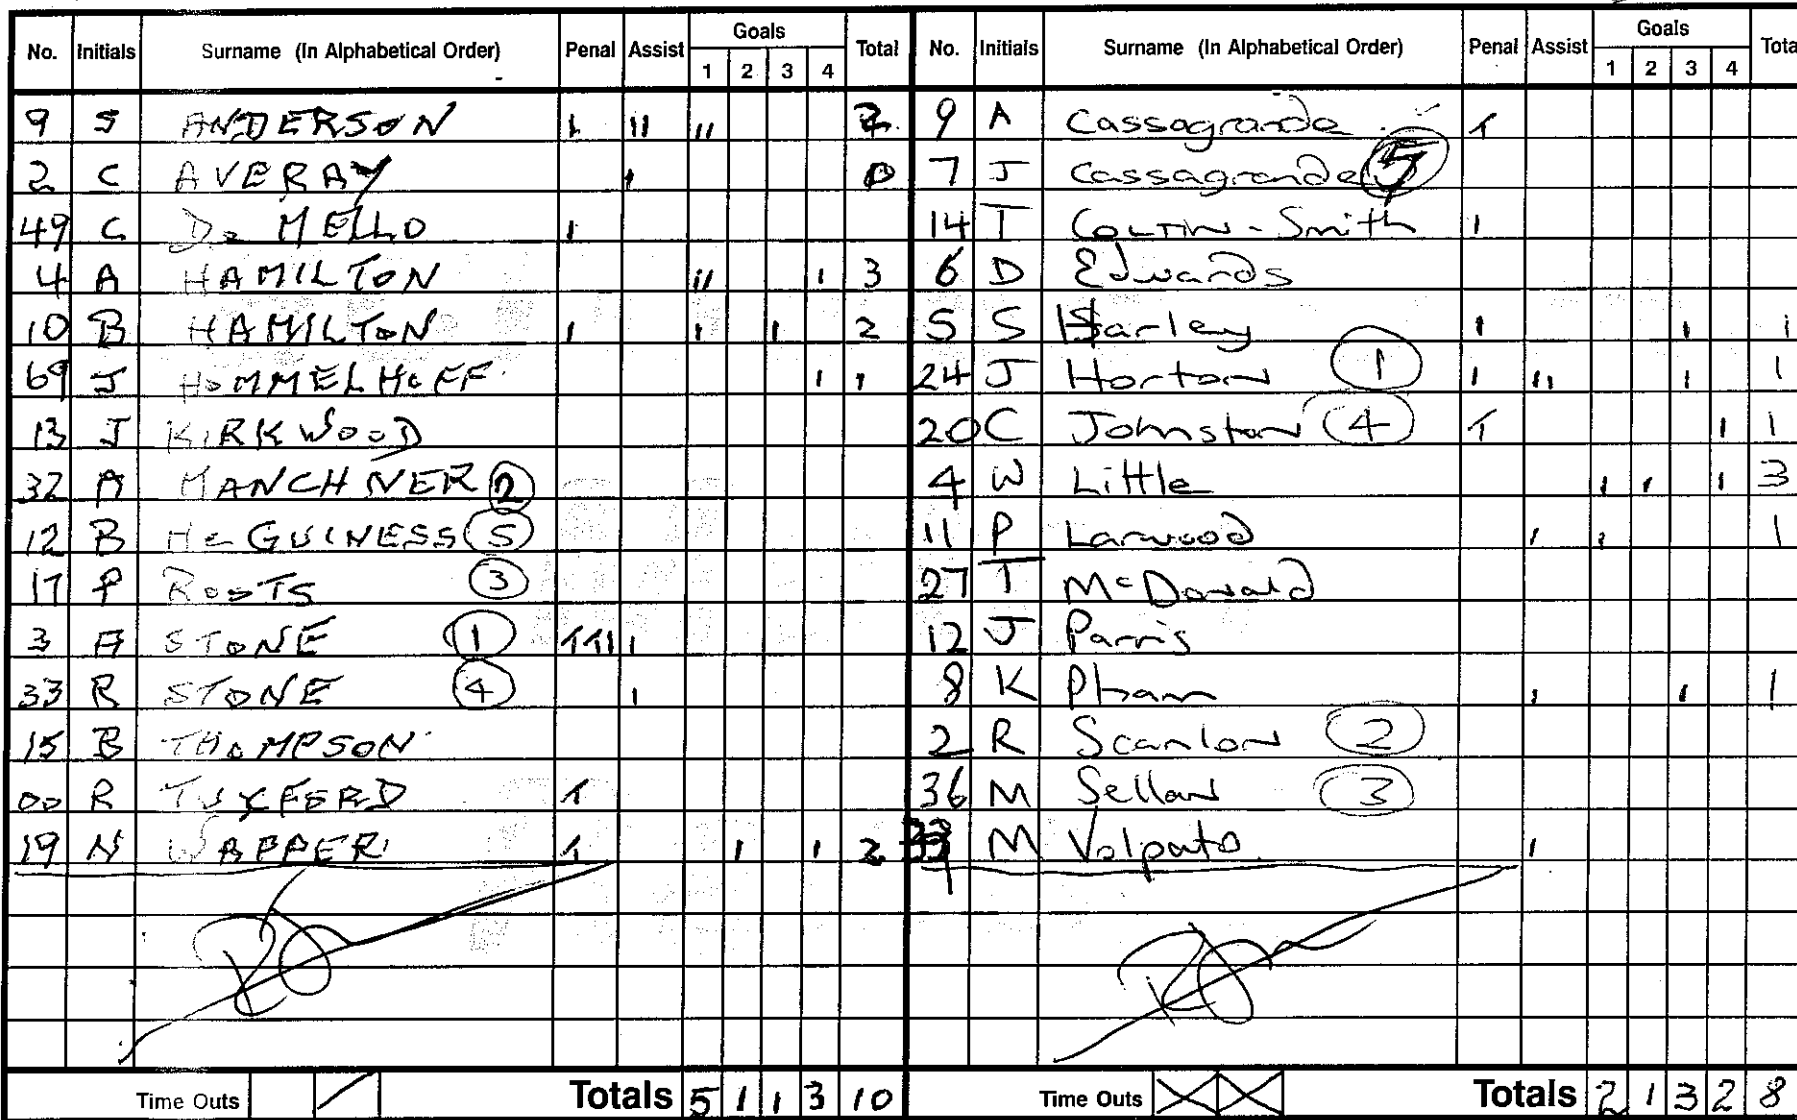 No. Initials Surname (In Alphabetical Order) Penal Assist Goals 1 2 3 4 Total
9 S ANDERSON I II II 2
2 C AVERAY I 0
49 C De MELLO I
4 A HAMILTON II I 3
10 B HAMILTON I I I 2
69 J HOMMELHOFF I 1
13 J KIRKWOOD
32 A MANCHNER 2
12 B McGUINESS 5
17 P ROOTS 3
3 A STONE 1 TTI I
33 R STONE 4 I
15 B THOMPSON
00 R TUXFORD T
19 N WAPPER T I I 2
Time Outs / Totals 5 1 1 3 10
No. Initials Surname (In Alphabetical Order) Penal Assist Goals 1 2 3 4 Tota
9 A Cassagrande T
7 J Cassagrande 5
14 T Coltin-Smith I
6 D Edwards
5 S Harley I I 1
24 J Horton 1 I II I 1
20 C Johnston 4 T I 1
4 W Little I I I 3
11 P Larwood I I 1
27 T McDonald
12 J Parris
8 K Pham I I 1
2 R Scanlon 2
36 M Sellan 3
M Volpato I
Time Outs X X Totals 2 1 3 2 8